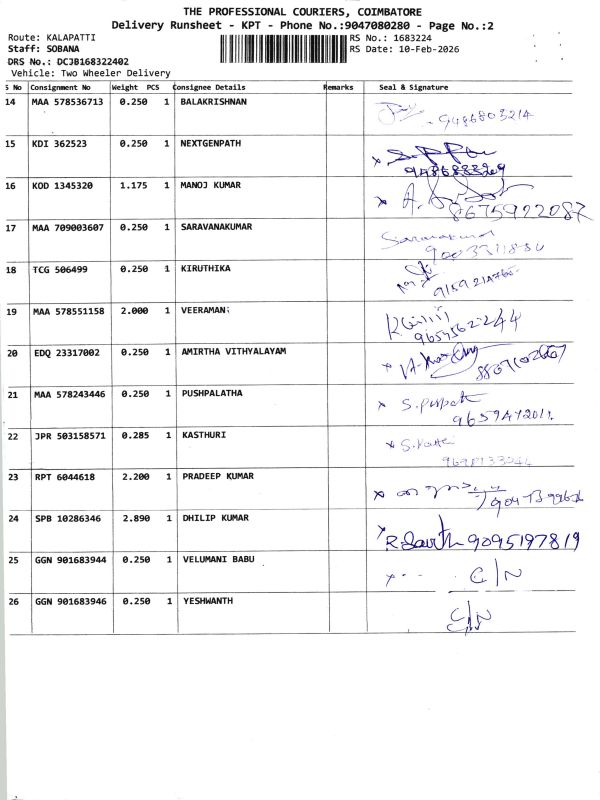 THE PROFESSIONAL COURIERS, COIMBATORE
Delivery Runsheet - KPT - Phone No.:9047080280 - Page No.:2
Route: KALAPATTI
RS No.: 1683224
Staff: SOBANA
RS Date: 10-Feb-2026
DRS No.: DCJB168322402
Vehicle: Two Wheeler Delivery
S No Consignment No Weight PCS Consignee Details Remarks Seal & Signature
14 MAA 578536713 0.250 1 BALAKRISHNAN
9486803214
15 KDI 362523 0.250 1 NEXTGENPATH
16 KOD 1345320 1.175 1 MANOJ KUMAR
8675922087
17 MAA 709003607 0.250 1 SARAVANAKUMAR
Saravanakumar
18 TCG 506499 0.250 1 KIRUTHIKA
19 MAA 578551158 2.000 1 VEERAMANI
9659562244
20 EDQ 23317002 0.250 1 AMIRTHA VITHYALAYAM
21 MAA 578243446 0.250 1 PUSHPALATHA
22 JPR 503158571 0.285 1 KASTHURI
23 RPT 6044618 2.200 1 PRADEEP KUMAR
24 SPB 10286346 2.890 1 DHILIP KUMAR
9095197819
25 GGN 901683944 0.250 1 VELUMANI BABU
C/N
26 GGN 901683946 0.250 1 YESHWANTH
C/N